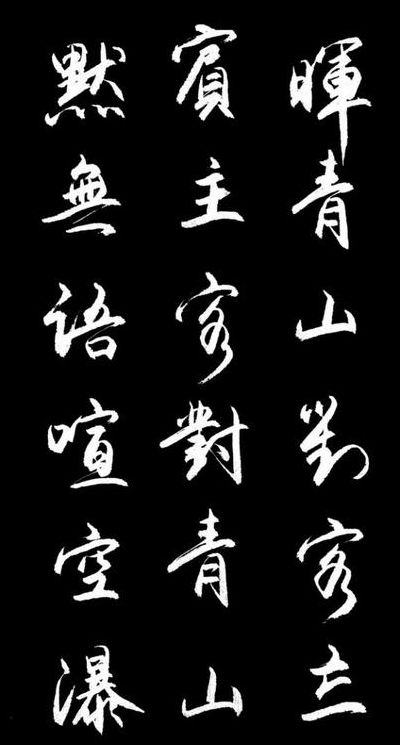 暉青山對客立
賓主客對青山
默無語喧空瀑